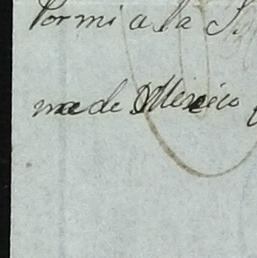 Por mi a la S
me de Mexico